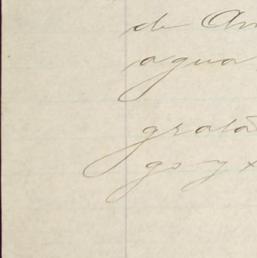 de Am
agua
grata
gs y x